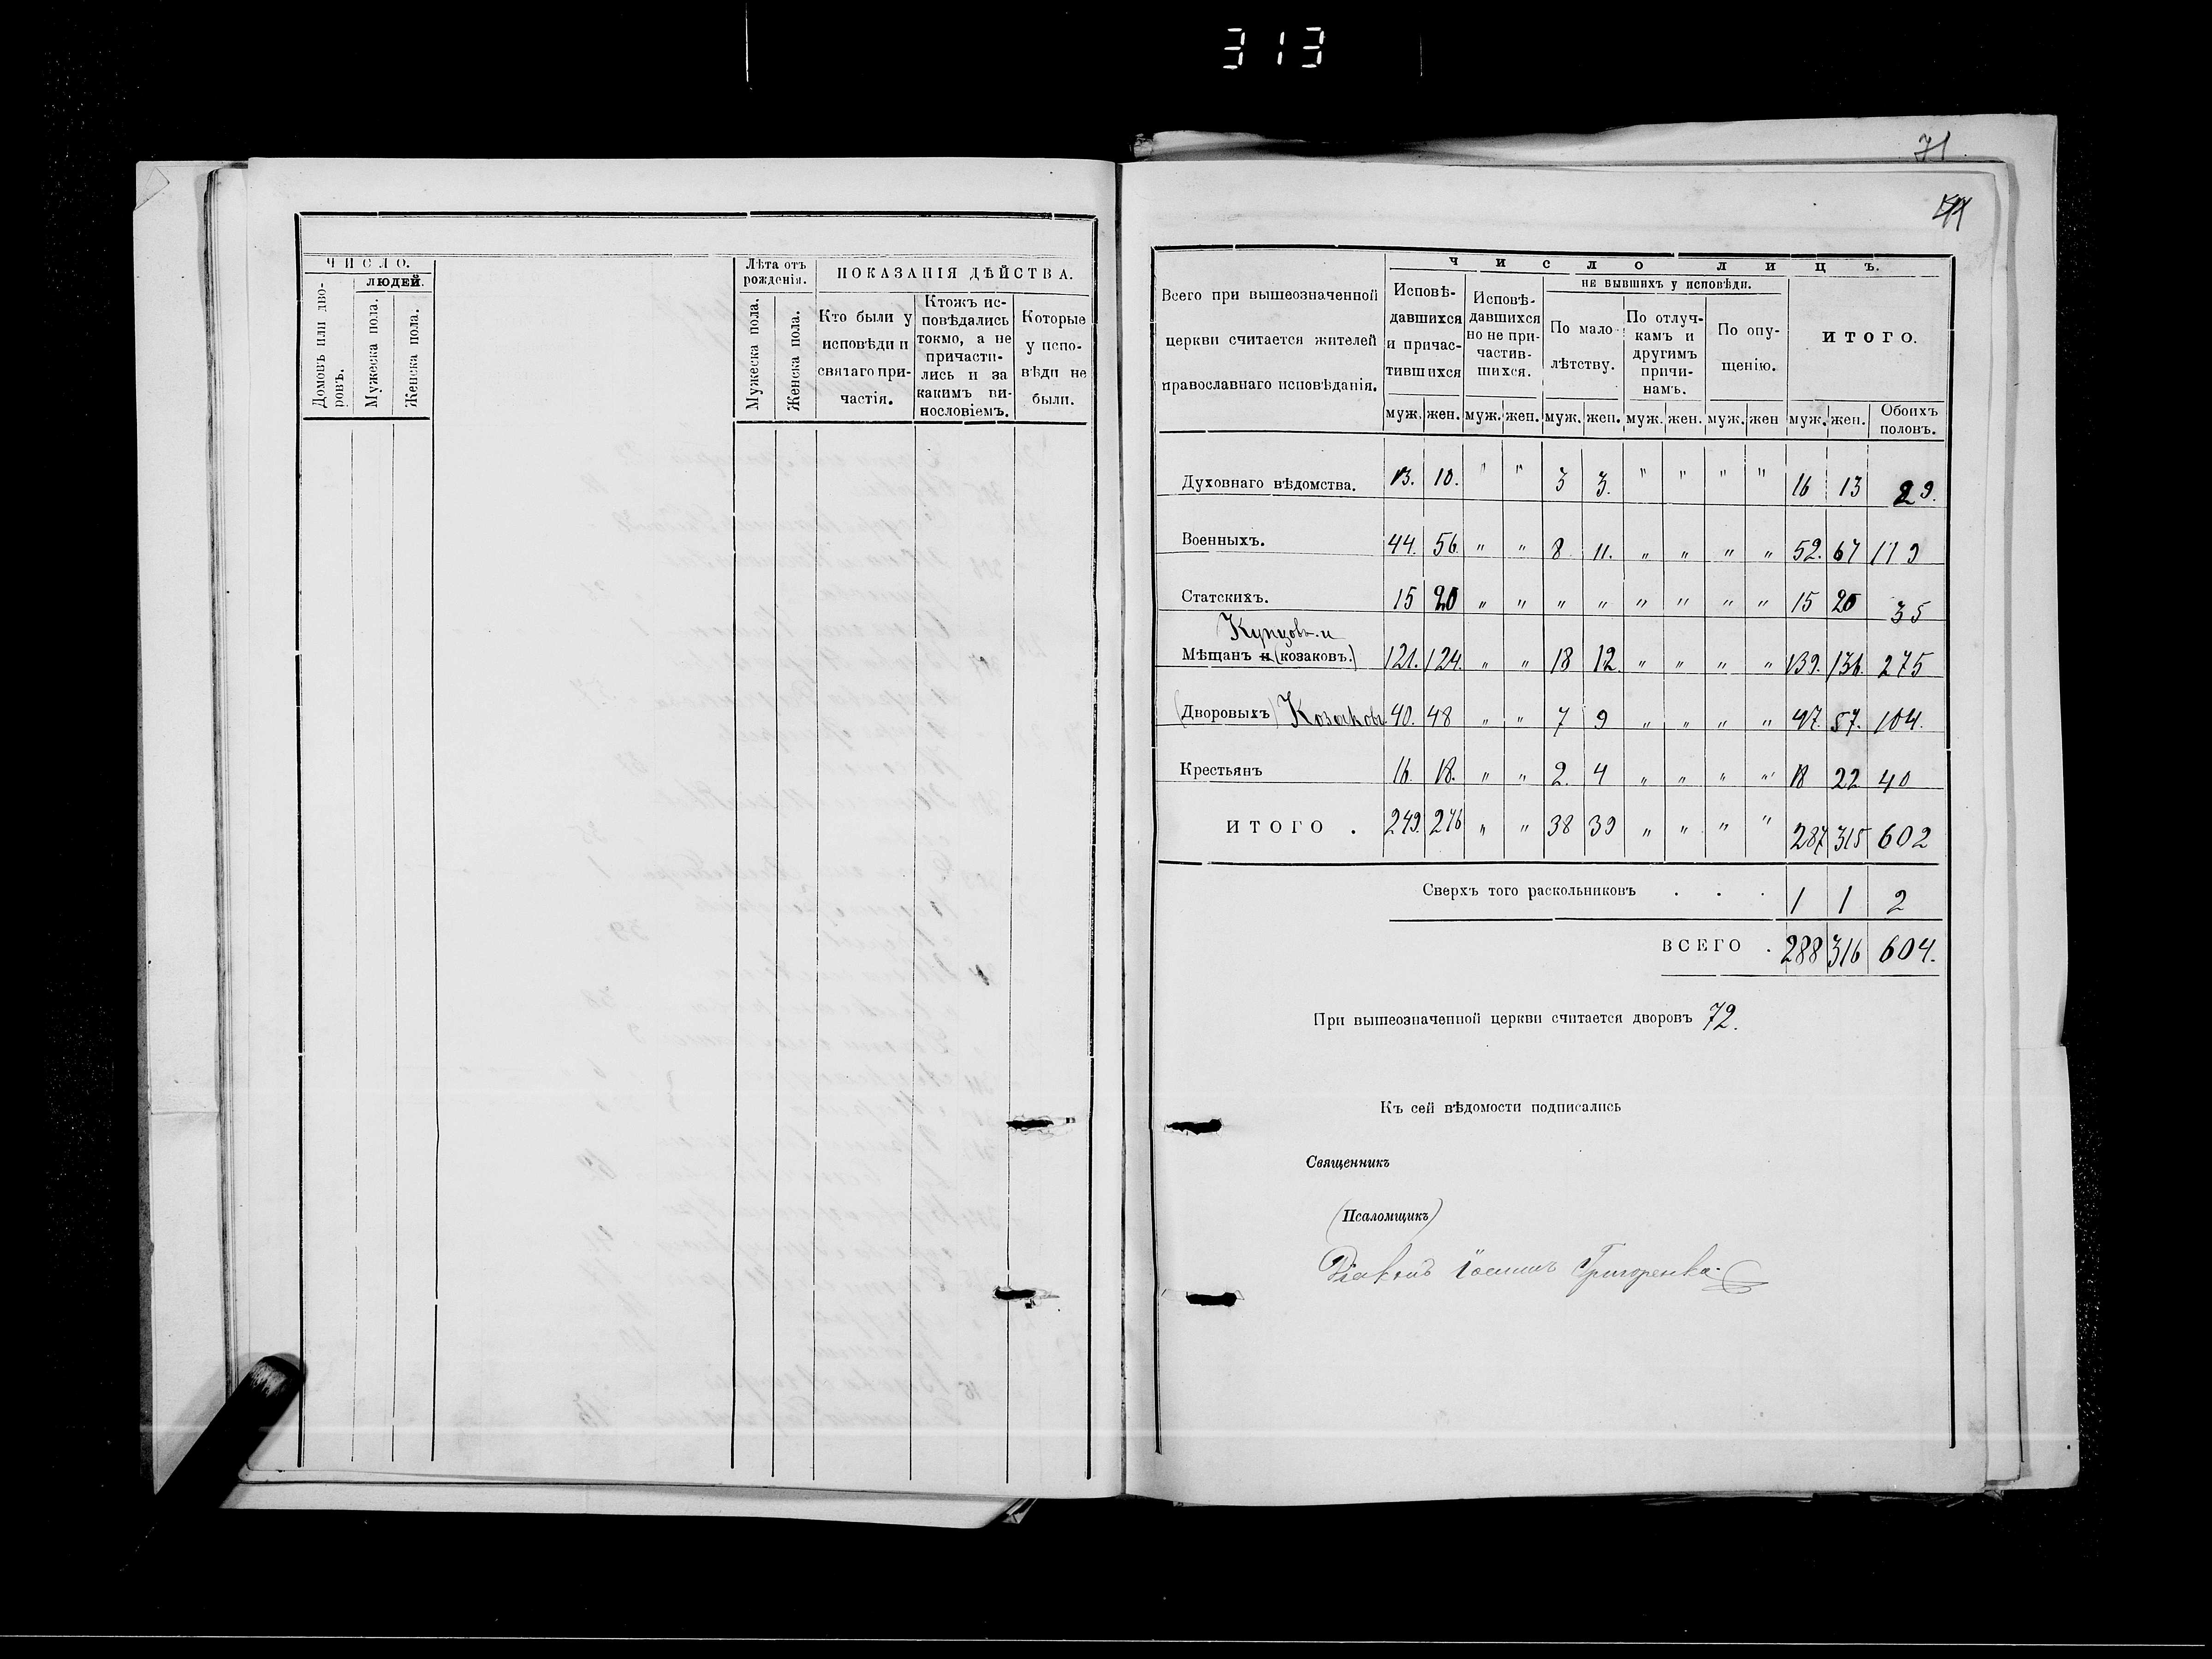 313
71
44
ЧИСЛО.
Домовъ или дво-
ровъ.
ЛЮДЕЙ.
Мужеска пола.
Женска пола.
Лѣта отъ
рожденія.
Мужеска пола.
Женска пола.
ПОКАЗАНІЯ ДѢЙСТВА.
Кто были у
исповѣди и
святаго при-
частія.
Ктожъ ис-
повѣдались
токмо, а не
причасти-
лись и за
какимъ ви-
нословіемъ.
Которые
у испо-
вѣди не
были.
Всего при вышеозначенной
церкви считается жителей
православнаго исповѣданія.
ЧИСЛО ЛИЦЪ.
Исповѣ-
давшихся
и причас-
тившихся
Исповѣ-
давшихся
но не при-
частив-
шихся.
НЕ БЫВШИХЪ У ИСПОВѢДИ.
По мало-
лѣтству.
По отлуч-
камъ и
другимъ
причи-
намъ.
По опу-
щенію.
ИТОГО.
муж. жен. муж. жен. муж. жен. муж. жен. муж. жен муж. жен. Обоихъ
половъ.
Духовнаго вѣдомства. 13. 10. " " 3 3. " " " " 16 13 29.
Военныхъ. 44. 56 " " 8 11. " " " " 52. 67 119
Статскихъ. 15 20 " " " " " " " " 15 20 35
Купцовъ и
Мѣщанъ и (козаковъ.) 121. 124. " " 18 12 " " " " 139. 136. 275
(Дворовыхъ) Козаковъ 40. 48 " " 7 9 " " " " 47. 57. 104.
Крестьянъ 16. 18. " " 2. 4 " " " " 18 22 40
ИТОГО . 249. 276 " " 38 39 " " " " 287 315 602
Сверхъ того раскольниковъ . . . 1 1 2
ВСЕГО . 288 316 604.
При вышеозначенной церкви считается дворовъ 72.
Къ сей вѣдомости подписались
Священникъ
(Псаломщикъ)
Діаконъ Іоаннъ Григоренко.